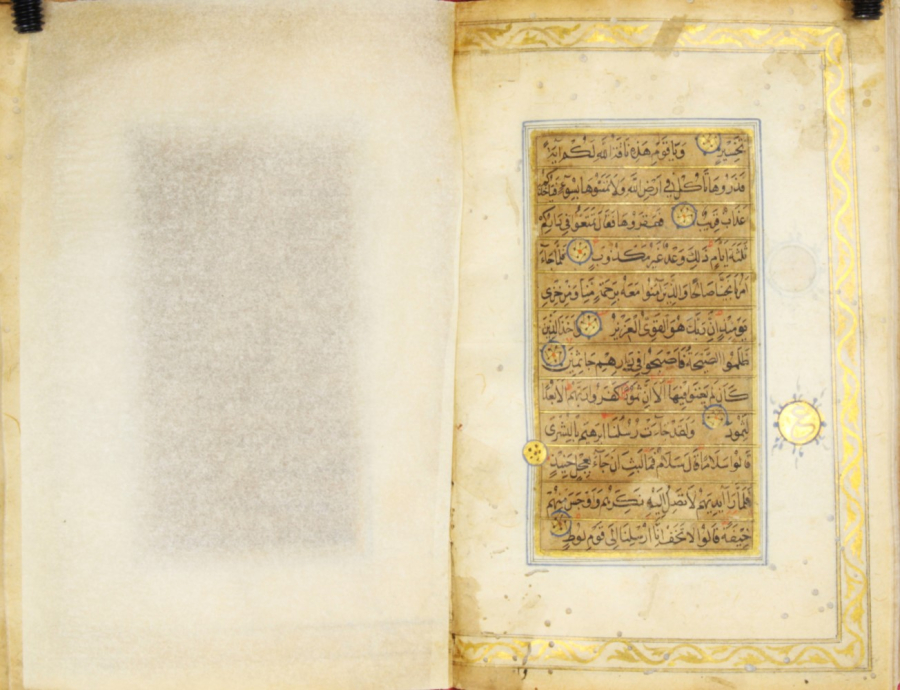 تخسير وياقوم هذه ناقة الله لكم آية
فذروها تأكل في أرض الله ولا تمسوها بسوء فيأخذكم
عذاب قريب فعقروها فقال تمتعوا في داركم
ثلثة أيام ذلك وعد غير مكذوب فلما جاء
أمرنا نجينا صالحا والذين آمنوا معه برحمة منا ومن خزي
يومئذ إن ربك هو القوي العزيز وأخذ الذين
ظلموا الصيحة فأصبحوا في ديارهم جاثمين
كأن لم يغنوا فيها ألا إن ثمودا كفروا ربهم ألا بعدا
لثمود ولقد جاءت رسلنا إبرهيم بالبشرى
قالوا سلاما قال سلام فما لبث أن جاء بعجل حنيذ
فلما رأى أيديهم لا تصل إليه نكرهم وأوجس منهم
خيفة قالوا لا تخف إنا أرسلنا إلى قوم لوط